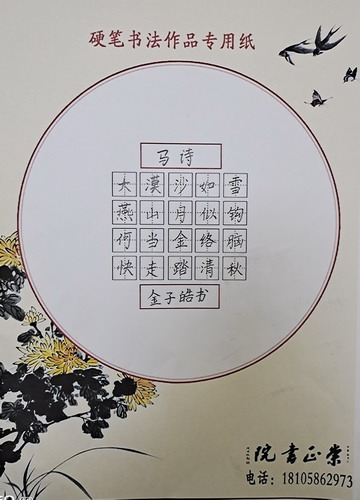 硬笔书法作品专用纸
马诗
大漠沙如雪
燕山月似钩
何当金络脑
快走踏清秋
金子皓书
崇正書院
电话：18105862973